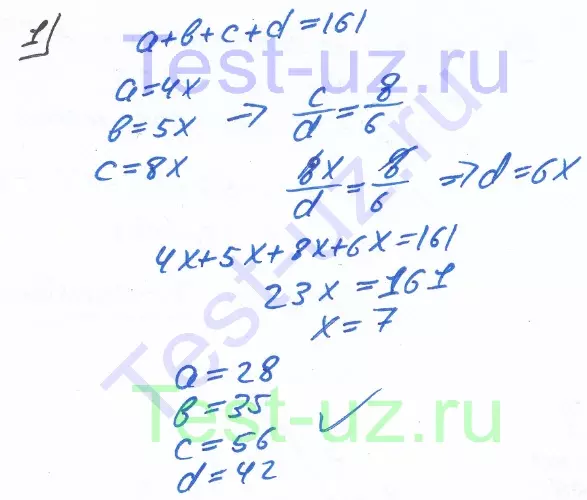 1) a+b+c+d=161
Test-uz.ru
a=4x
b=5x → c/d = 8/6
c=8x
8x/d = 8/6 ⇒ d=6x
4x+5x+8x+6x=161
23x=161
x=7
a=28
b=35
c=56 ✓
d=42
Test-uz.ru
Test-uz.ru